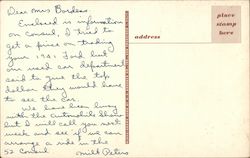 Dear Miss Bordeas
Enclosed is information
on Consul, I tried to
get a price on trading
your 1941 Ford but
our used car department
said to give the top
dollar they would have
to see the car.
We have been busy
with the Automobile Show
but I will call you next
week and see if we can
arrange a ride in the
52 Consul
Milt Peters
address
place
stamp
here